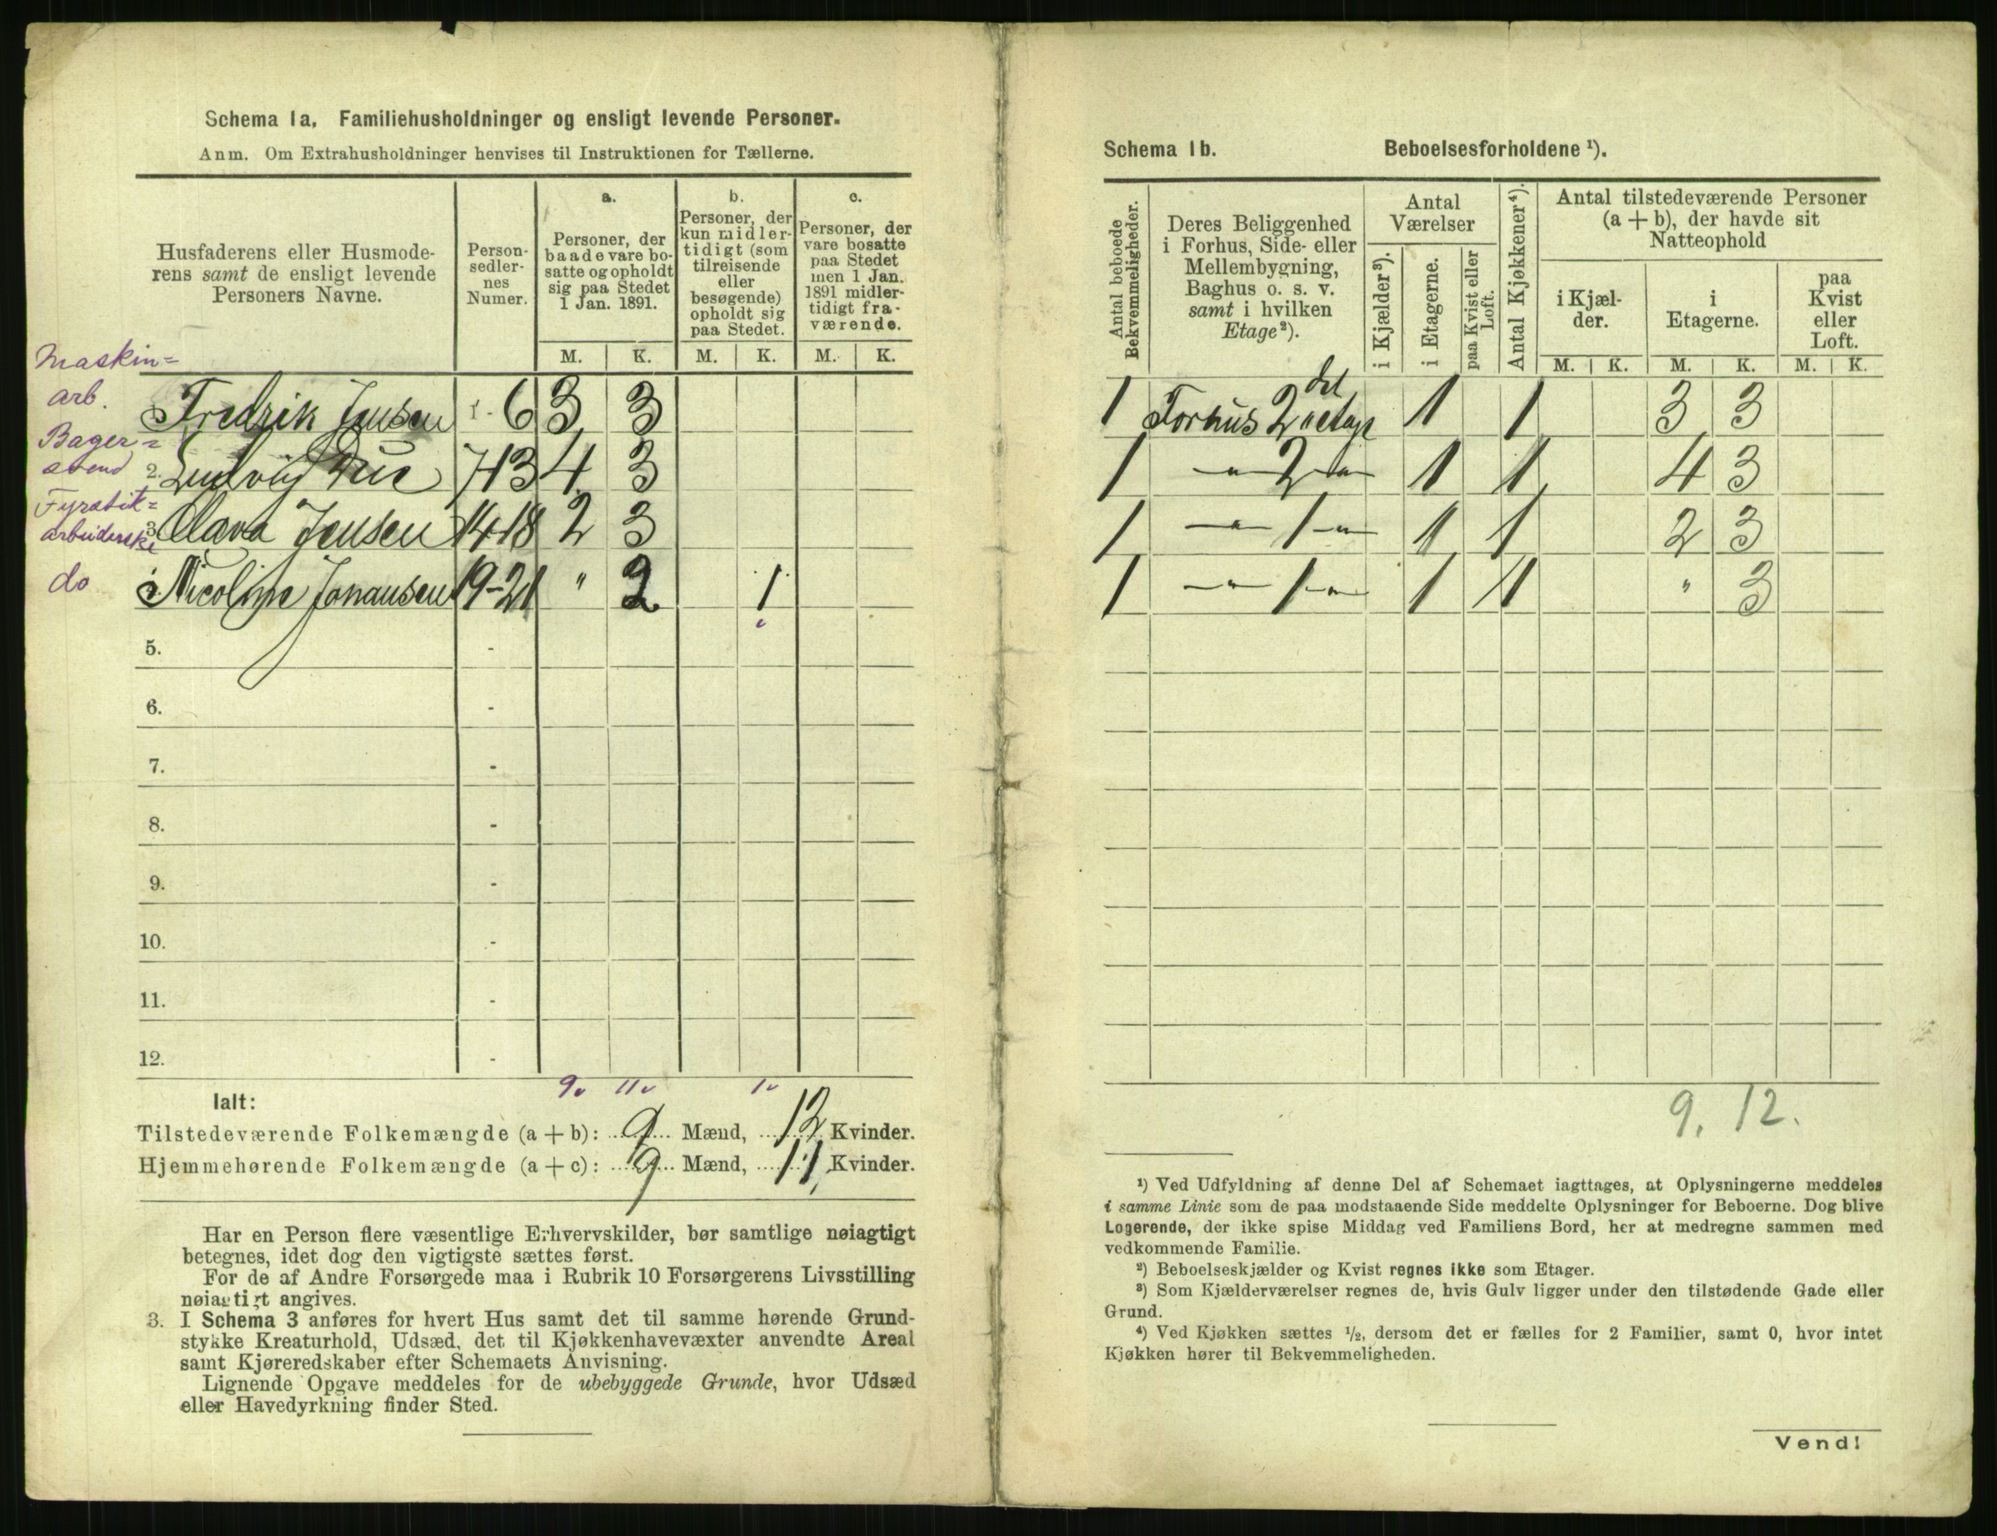 Schema 1a. Familiehusholdninger og ensligt levende Personer.
Anm. Om Extrahusholdninger henvises til Instruktionen for Tællerne.
Husfaderens eller Husmode-
rens samt de ensligt levende
Personers Navne.
Person-
sedler-
nes
Numer.
a.
Personer, der
baade vare bo-
satte og opholdt
sig paa Stedet
1 Jan. 1891.
b.
Personer, der
kun midler-
tidigt (som
tilreisende
eller
besøgende)
opholdt sig
paa Stedet.
c.
Personer, der
vare bosatte
paa Stedet
men 1 Jan.
1891 midler-
tidigt fra-
værende.
M. K. M. K. M. K.
Maskin=
arb. Fredrik Jensen 1-6 3 3
Bager=
svend 2. Ludvig Due 7-13 4 3
Fyrstik=
arbeiderske 3 Clara Jensen 14-18 2 3
do Nicoline Johansen 19-21 " 2 1
5. -
6. -
7. -
8. -
9. -
10. -
11. -
12. -
9v 11v 1v
Ialt:
Tilstedeværende Folkemængde (a + b): 9 Mænd, 12 Kvinder.
Hjemmehørende Folkemængde (a + c): 9 Mænd, 11 Kvinder.
Har en Person flere væsentlige Erhvervskilder, bør samtlige nøiagtigt
betegnes, idet dog den vigtigste sættes først.
For de af Andre Forsørgede maa i Rubrik 10 Forsørgerens Livsstilling
nøiagtigt angives.
3. I Schema 3 anføres for hvert Hus samt det til samme hørende Grund-
stykke Kreaturhold, Udsæd, det til Kjøkkenhavevæxter anvendte Areal
samt Kjøreredskaber efter Schemaets Anvisning.
Lignende Opgave meddeles for de ubebyggede Grunde, hvor Udsæd
eller Havedyrkning finder Sted.
Schema 1b. Beboelsesforholdene ¹).
Antal beboede
Bekvemmeligheder.
Deres Beliggenhed
i Forhus, Side- eller
Mellembygning,
Baghus o. s. v.
samt i hvilken
Etage²).
Antal
Værelser
i Kjælder³).
i Etagerne.
paa Kvist eller
Loft.
Antal Kjøkkener⁴).
Antal tilstedeværende Personer
(a + b), der havde sit
Natteophold
i Kjæl-
der.
i
Etagerne.
paa
Kvist
eller
Loft.
M. K. M. K. M. K.
1 Forhus 2 etage 1 1 3 3
1 -"- 2 -"- 1 1 4 3
1 -"- 1 -"- 1 1 2 3
1 -"- 1 -"- 1 1 " 3
9. 12.
¹) Ved Udfyldning af denne Del af Schemaet iagttages, at Oplysningerne meddeles
i samme Linie som de paa modstaaende Side meddelte Oplysninger for Beboerne. Dog blive
Logerende, der ikke spise Middag ved Familiens Bord, her at medregne sammen med
vedkommende Familie.
²) Beboelseskjælder og Kvist regnes ikke som Etager.
³) Som Kjælderværelser regnes de, hvis Gulv ligger under den tilstødende Gade eller
Grund.
⁴) Ved Kjøkken sættes ½, dersom det er fælles for 2 Familier, samt 0, hvor intet
Kjøkken hører til Bekvemmeligheden.
Vend!